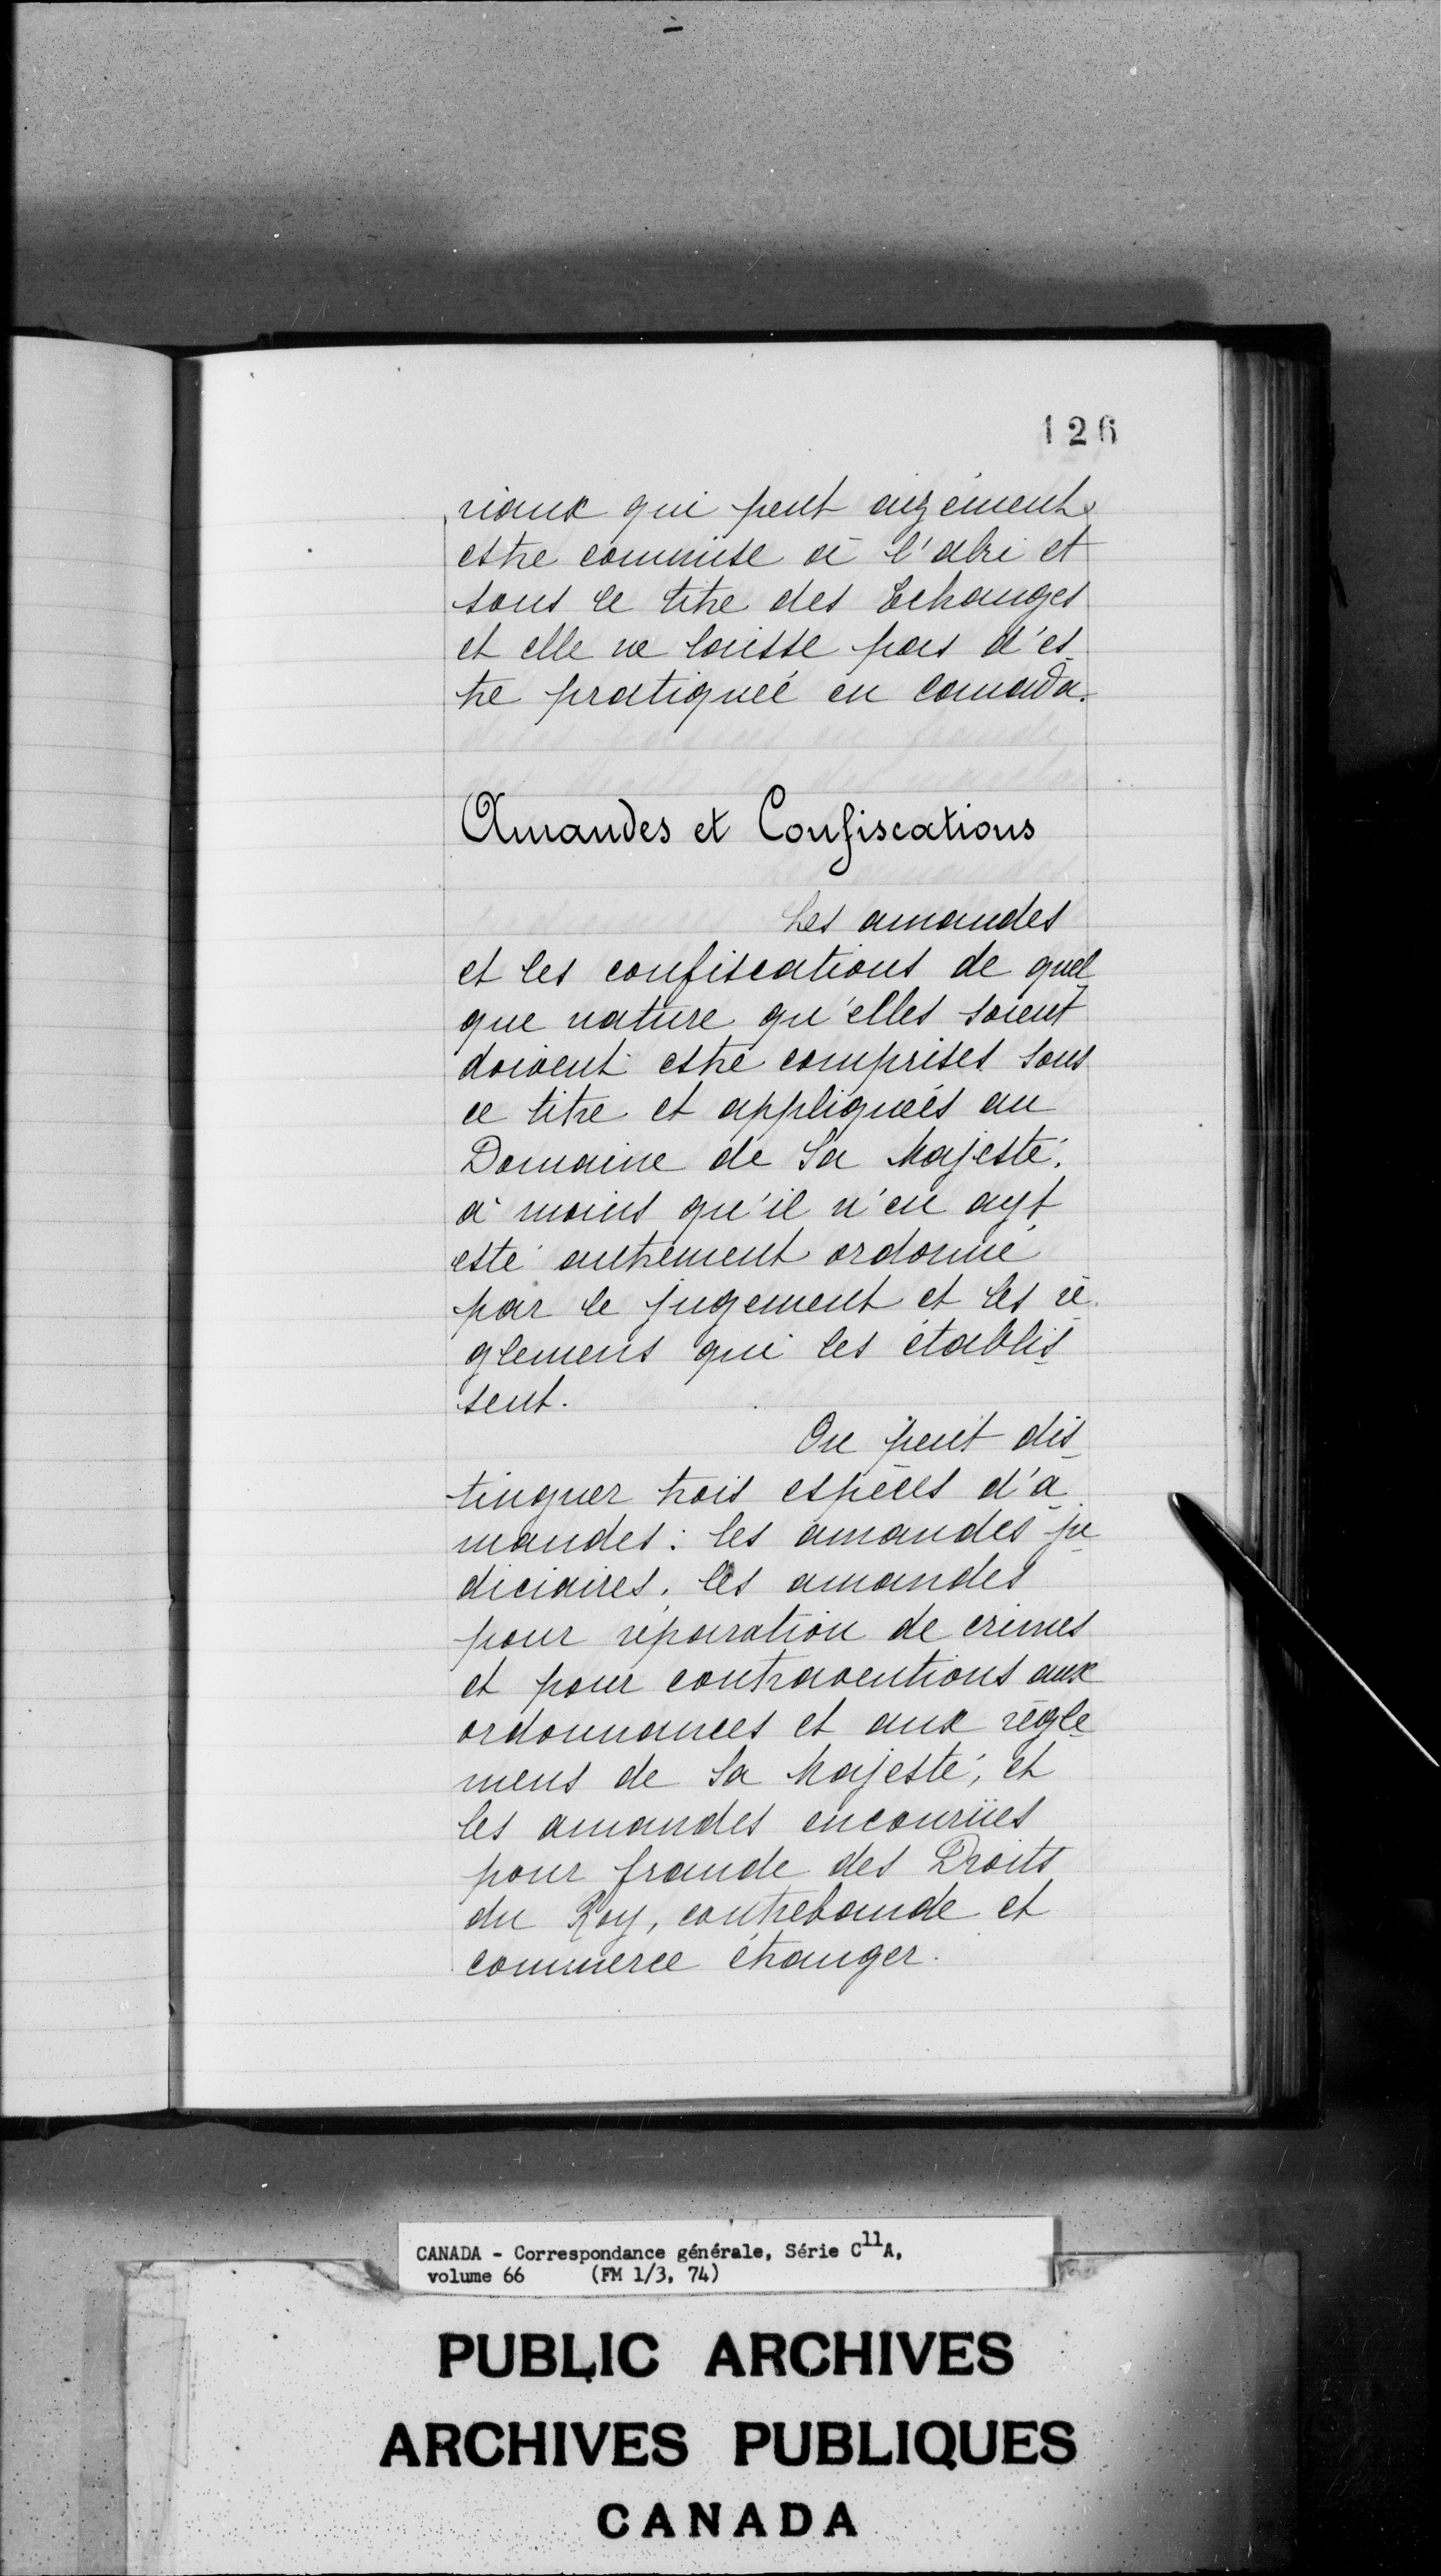 126
riaux qui peut aizément
estre commise à l'abri et
sous le titre des Echanges
et elle ne laisse pas d'es_
tre pratiquée en Canada.
Amandes et Confiscations
Les amandes
et les confiscations de quel_
que nature qu'elles soient
doivent estre comprises sous
ce titre et appliqueés au
Domaine de Sa Majesté,
à moins qu'il n'en ayt
esté autrement ordonné
par le jugement et les ré_
glemens qui les établis_
sent.
On peut dis_
tinguer trois espèces d'a_
mandes: les amandes ju_
diciaires, les amandes
pour réparation de crimes
et pour contraventions aux
ordonnances et aux régle_
mens de Sa Majesté, et
les amandes encourües
pour fraude des Droits
du Roy, contrebande et
commerce étranger.
CANADA - Correspondance générale, Série C11A,
volume 66 (FM 1/3, 74)
PUBLIC ARCHIVES
ARCHIVES PUBLIQUES
CANADA